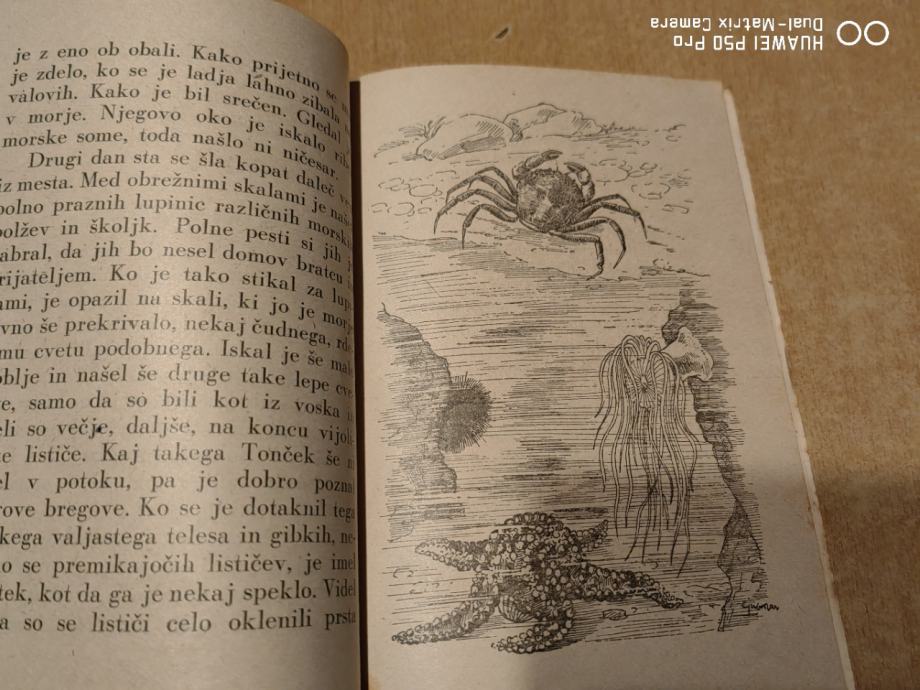 je z eno ob obali. Kako prijetno se
je zdelo, ko se je ladja lahno zibala
valovih. Kako je bil srečen. Gledal
v morje. Njegovo oko je iskalo
morske some, toda našlo ni ničesar.
Drugi dan sta se šla kopat daleč
iz mesta. Med obrežnimi skalami je
polno praznih lupinic različnih
polžev in školjk. Polne pesti si jih
abral, da jih bo nesel domov bratcu
rijateljem. Ko je tako stikal za
ami, je opazil na skali, ki jo je
vno še prekrivalo, nekaj čudnega,
mu cvetu podobnega. Iskal je še
oblje in našel še druge take lepe
e, samo da so bili kot iz voska
eli so večje, daljše, na koncu
e lističe. Kaj takega Tonček še
el v potoku, pa je dobro
rove bregove. Ko se je dotaknil tega
kega valjastega telesa in gibkih, ne-
o se premikajočih lističev, je imel
tek, kot da ga je nekaj speklo. Videl
a so se lističi celo oklenili prsta
HUAWEI P50 Pro
Dual-Matrix Camera